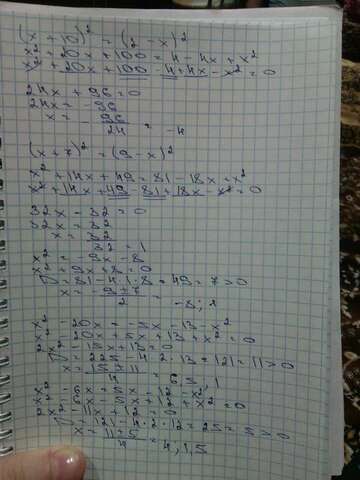 (x + 10)² = (2 - x)²
x² + 20x + 100 = 4 - 4x + x²
x² + 20x + 100 - 4 + 4x - x² = 0
24x + 96 = 0
24x = -96
x = -96/24 = -4
(x + 7)² = (9 - x)²
x² + 14x + 49 = 81 - 18x + x²
x² + 14x + 49 - 81 + 18x - x² = 0
32x - 32 = 0
32x = 32
x = 32/32 = 1
x² = -9x - 8
x² + 9x + 8 = 0
D = 81 - 4·1·8 = 49 = 7 > 0
x = -9±7/2 = -8;
x² - 20x = -5x - 13 - x²
x² - 20x + 5x + 13 + x² = 0
2x² - 15x + 13 = 0
D = 225 - 4·2·13 = 121 = 11 > 0
x = 15±11/4 = 6,5, 1
x² - 6x = 5x - 12 - x²
x² - 6x - 5x + 12 + x² = 0
2x² - 11x + 12 = 0
D = 121 - 4·2·12 = 25 = 5 > 0
x = 11±5/4 = 4, 1,5